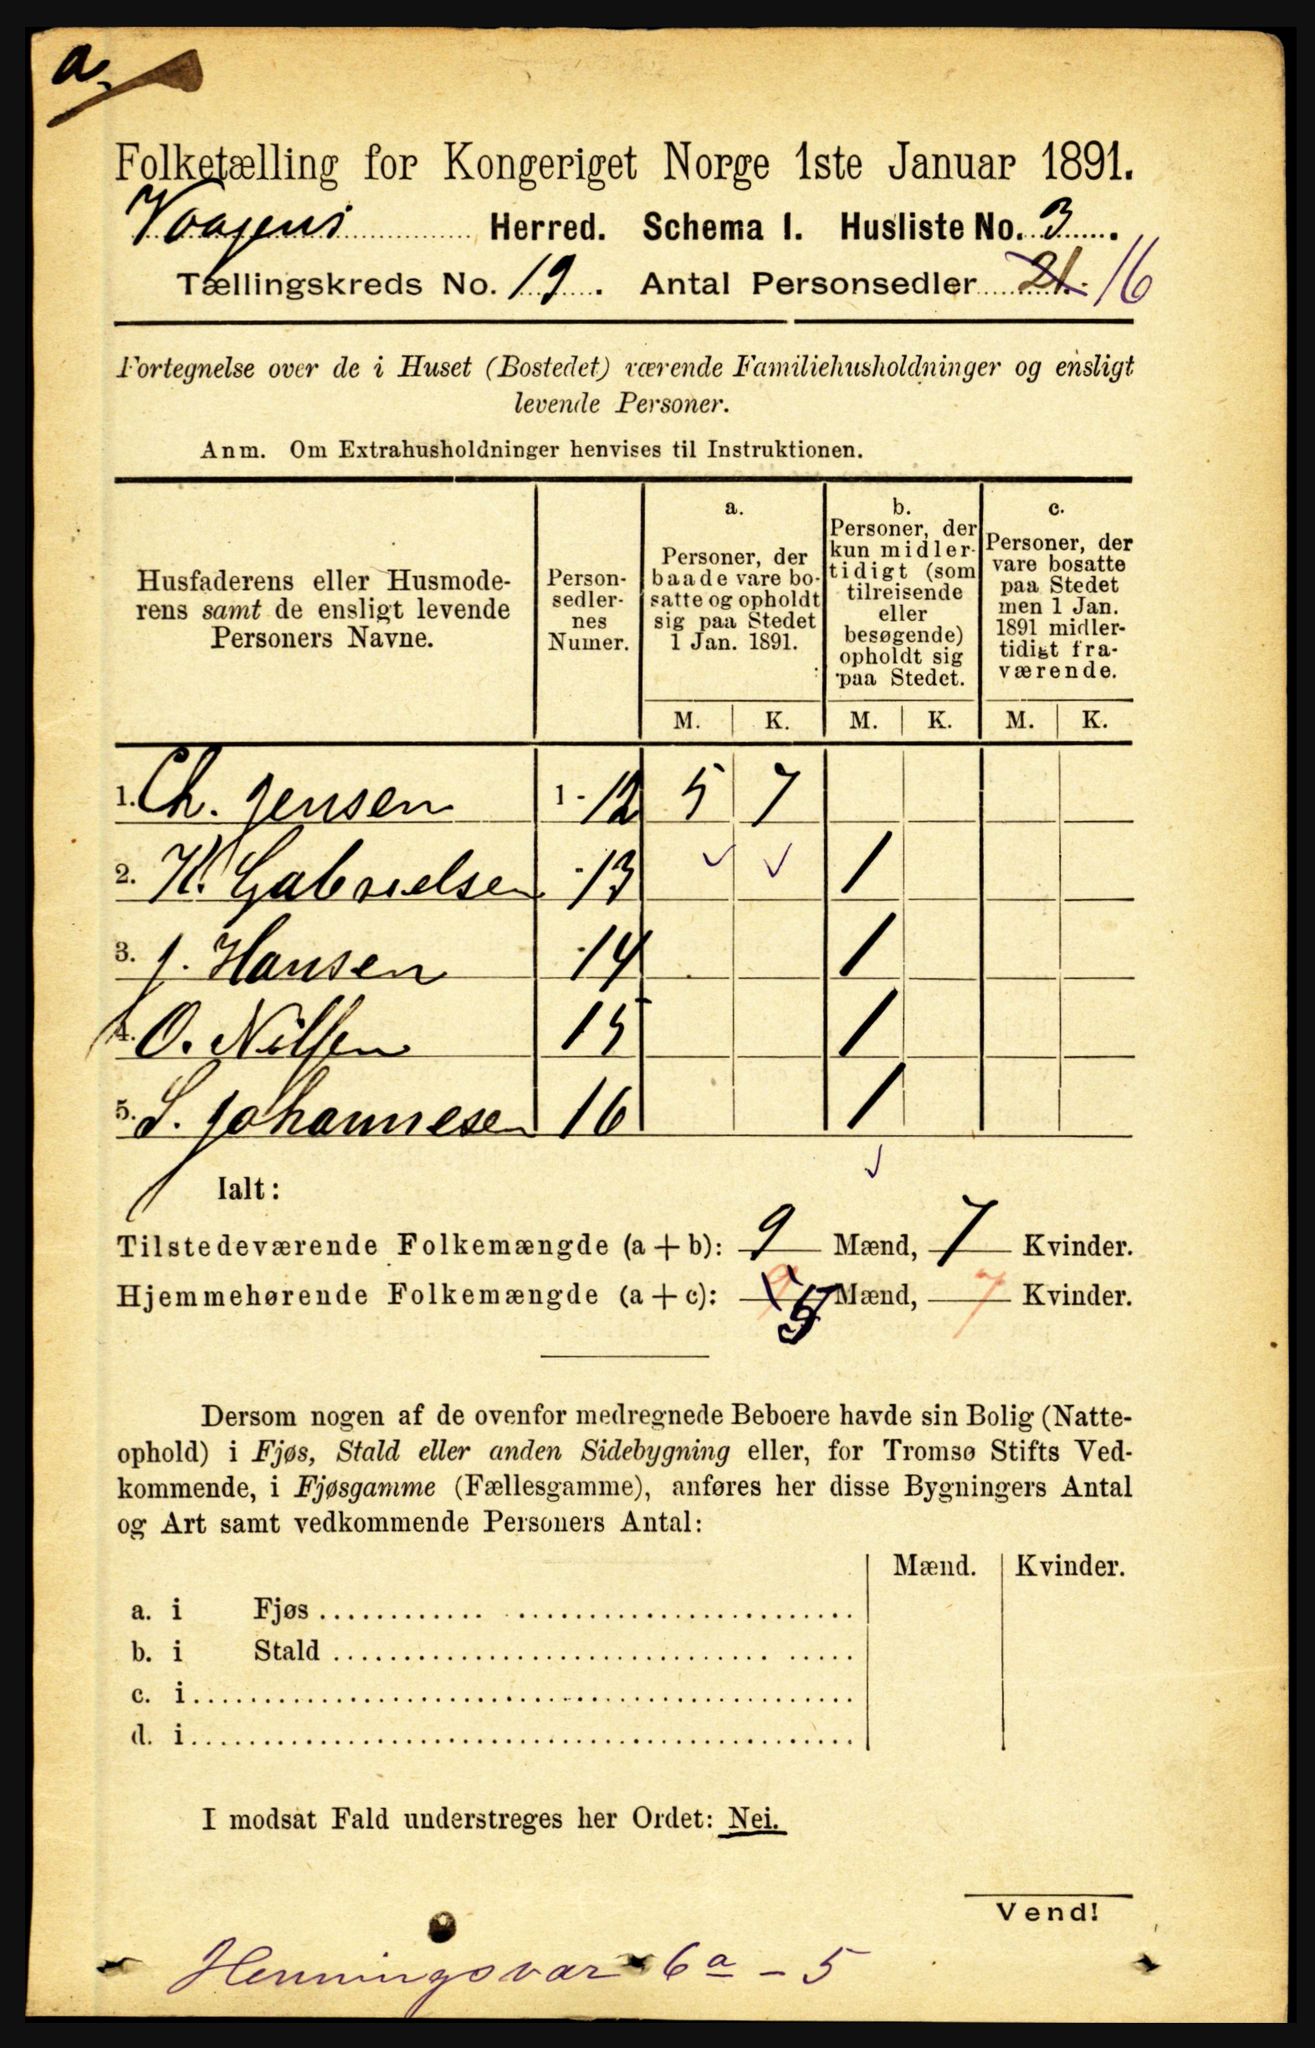 a.
Folketælling for Kongeriget Norge 1ste Januar 1891.
Vaagens Herred. Schema I. Husliste No. 3.
Tællingskreds No. 19. Antal Personsedler 21. 16
Fortegnelse over de i Huset (Bostedet) værende Familiehusholdninger og ensligt
levende Personer.
Anm. Om Extrahusholdninger henvises til Instruktionen.
Husfaderens eller Husmode-
rens samt de ensligt levende
Personers Navne.
Person-
sedler-
nes
Numer.
a.
Personer, der
baade vare bo-
satte og opholdt
sig paa Stedet
1 Jan. 1891.
b.
Personer, der
kun midler-
tidigt (som
tilreisende
eller
besøgende)
opholdt sig
paa Stedet.
c.
Personer, der
vare bosatte
paa Stedet
men 1 Jan.
1891 midler-
tidigt fra-
værende.
M. K. M. K. M. K.
1. Ch. Jensen 1 - 12 5 7
2. K. Gabrielsen - 13 1
3. J. Hansen - 14 1
4. O. Nilsen 15 1
5. S. Johannesen 16 1
Ialt:
Tilstedeværende Folkemængde (a + b): 9 Mænd, 7 Kvinder.
Hjemmehørende Folkemængde (a + c): 9 5 Mænd, 7 Kvinder.
Dersom nogen af de ovenfor medregnede Beboere havde sin Bolig (Natte-
ophold) i Fjøs, Stald eller anden Sidebygning eller, for Tromsø Stifts Ved-
kommende, i Fjøsgamme (Fællesgamme), anføres her disse Bygningers Antal
og Art samt vedkommende Personers Antal:
Mænd. Kvinder.
a. i Fjøs
b. i Stald
c. i
d. i
I modsat Fald understreges her Ordet: Nei.
Vend!
Henningsvær 6a - 5